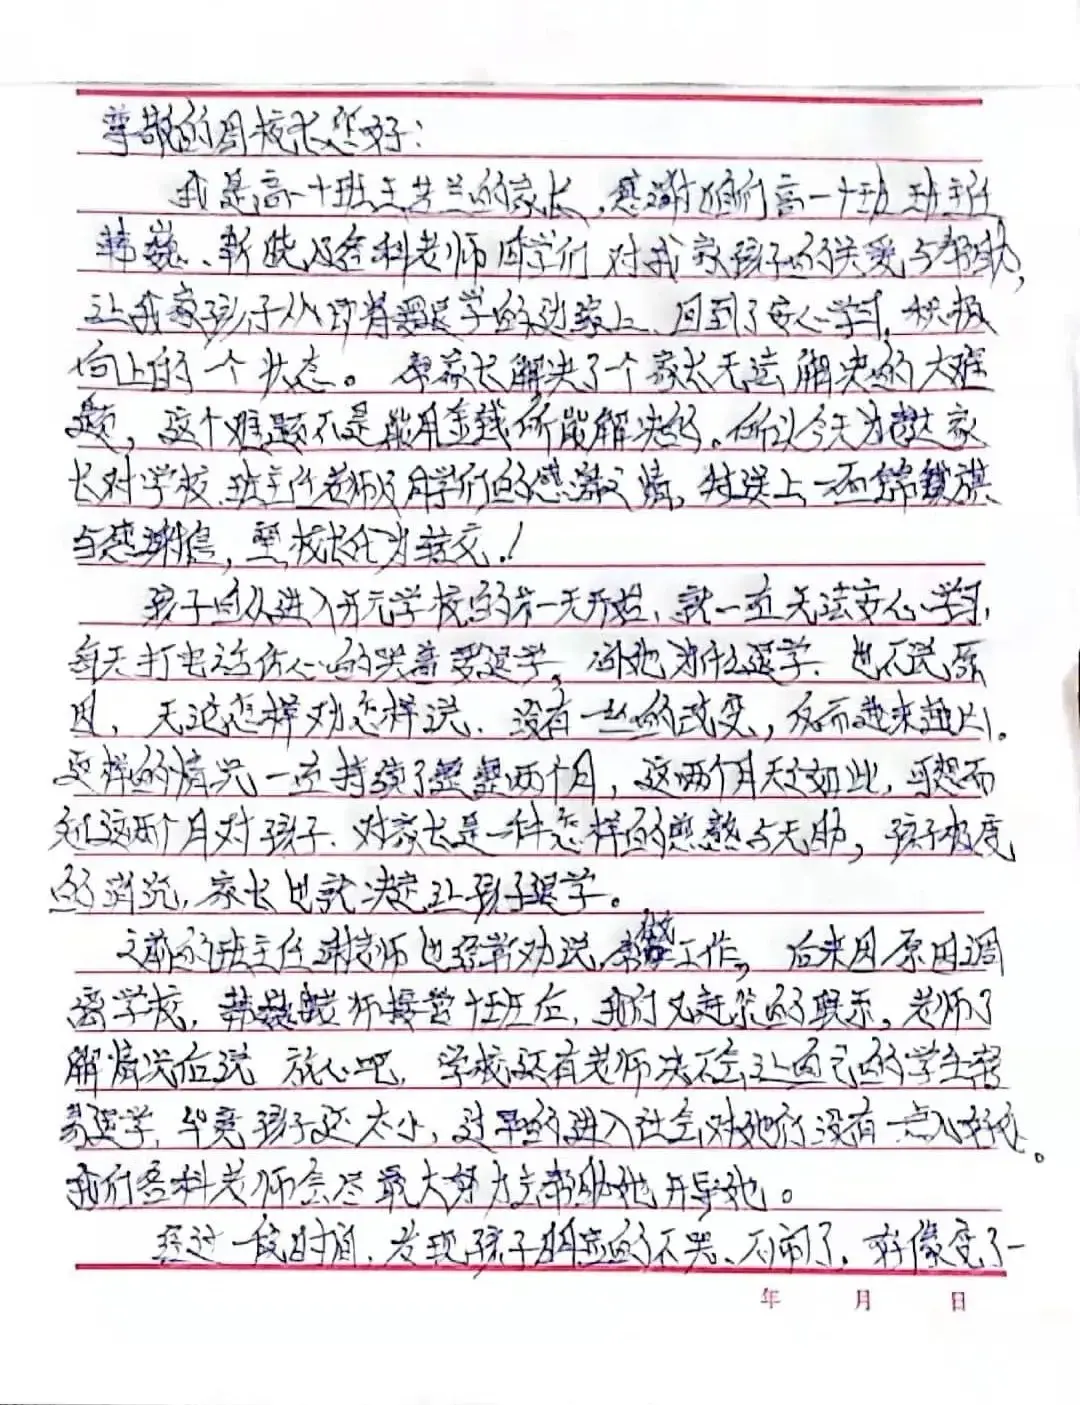 尊敬的周校长您好：
我是高一十班王艺兰的家长，感谢咱们高一十班班主任
韩巍、靳晓及各科老师同学们对我家孩子的关爱与帮助，
让我家孩子从即将要退学的边缘上、回到了安心学习，积极
向上的一个状态。帮家长解决了个家长无法解决的大难
题，这个难题不是能用金钱所能解决的。所以今天为表达家
长对学校、班主任老师及同学们的感激之情，特送上一面锦旗
与感谢信，望校长代为转交！
孩子自从进入开元学校的第一天开始，就一直无法安心学习，
每天打电话伤心的哭着要退学，问她为什么退学、也不说原
因，无论怎样劝怎样说、没有一丝的改变，反而越来越凶。
这样的情况一直持续了整整两个月，这两个月天天如此，可想而
知这两个月对孩子、对家长是一种怎样的煎熬与无助，孩子极度
的消沉，家长也就决定让孩子退学。
之前的班主任谢老师也经常劝说，做工作，后来因原因调
离学校，韩巍老师接管十班后，我们又赶紧的联系，老师了
解情况后说 放心吧，学校还有老师决不会让自己的学生轻
易退学，毕竟孩子还太小，过早的进入社会对她们没有一点儿好处。
我们各科老师会尽最大努力去帮助她开导她。
经过一段时间，发现孩子明显的不哭、不闹了，好像变了一
年 月 日